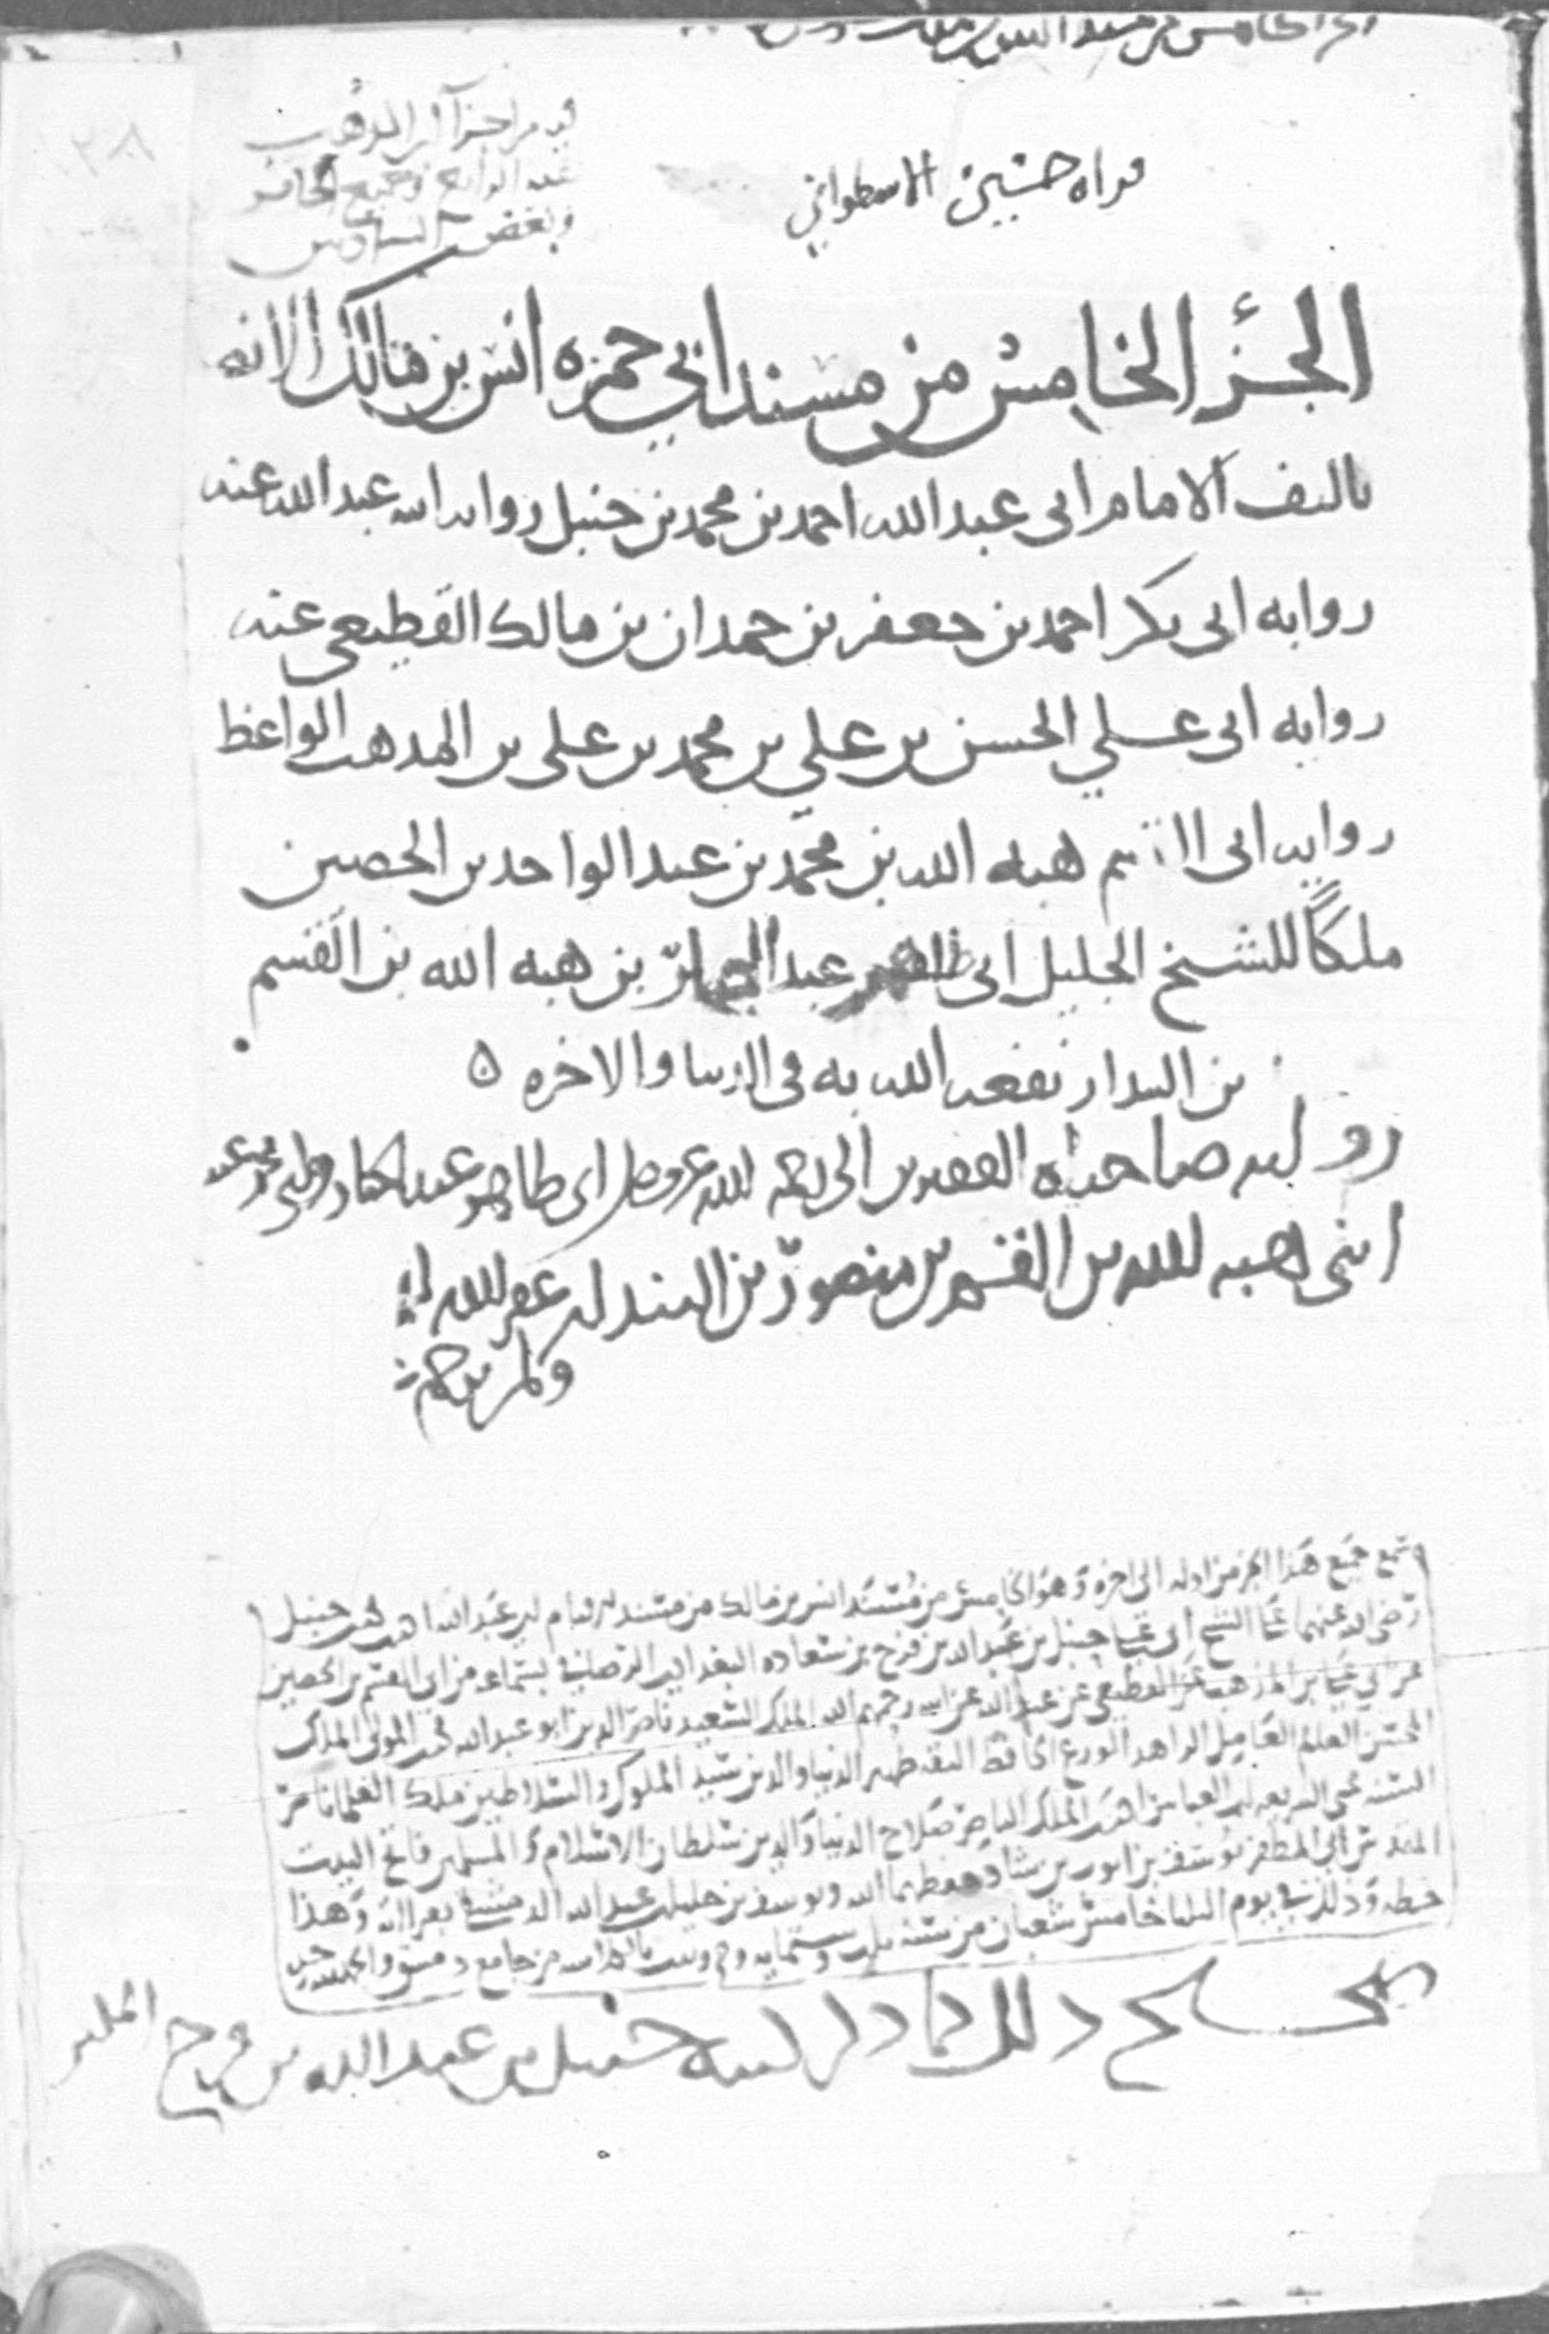 الجزء الخامس من مسند
قراه حسين الاسطواني
فيه من اجزاء المذهب
الرابع وجميع الخامس
وبعض السادس
الجزء الخامس من مسند ابي حمزه انس بن مالك
تاليف الامام ابي عبد الله احمد بن محمد بن حنبل روايه ابنه عبد الله عنه
روايه ابي بكر احمد بن جعفر بن حمدان بن مالك القطيعي عنه
روايه ابي علي الحسن بن علي بن محمد بن علي بن المذهب الواعظ
روايه ابي القسم هبه الله بن محمد بن عبد الواحد بن الحصين
ملكًا للشيخ الجليل ابي عبد بن هبه الله بن القسم
بن البندار نفعه الله به في الدنيا والاخره ه
روايه صاحباه الفقيرين الى رحمه الله عز وجل ابي طاهر عبد
ابني هبه الله بن القسم بن منصور بن البندار غفر الله لهم
ولمن ترحم
سمع جميع هذا الجزء من اوله الى اخره وهو الخامس من مسند انس بن مالك من مسند الامام ابي عبد الله احمد بن محمد بن حنبل
رضي الله عنهما على الشيخ ابي علي حنبل بن عبد الله بن فرج بن سعاده البغدادي الرصافي بسماعه من ابي القسم بن الحصين
عن ابي علي بن المذهب عن القطيعي عن عبد الله عن ابيه رحمهم الله الملك السعيد ناصر الدين ابو عبد الله محمد بن المولى الملك
المحسن العالم العامل الزاهد الورع الحافظ الثقه ظهير الدنيا والدين سيد الملوك والسلاطين ملك العلماء ناصر
السنه محيي الشريعه ابي العباس احمد بن الملك الناصر صلاح الدنيا والدين سلطان الاسلام والمسلمين فاتح البيت
المقدس ابي المظفر يوسف بن ايوب بن شاذي حفظهما الله ويوسف بن خليل بن عبد الله الدمشقي بقراءته وهذا
خطه وذلك في يوم الثلثا خامس شعبان من سنه ثلث وستمايه من جامع دمشق والحمد لله
صحيح ذلك حنبل بن عبد الله بن فرج المكبر